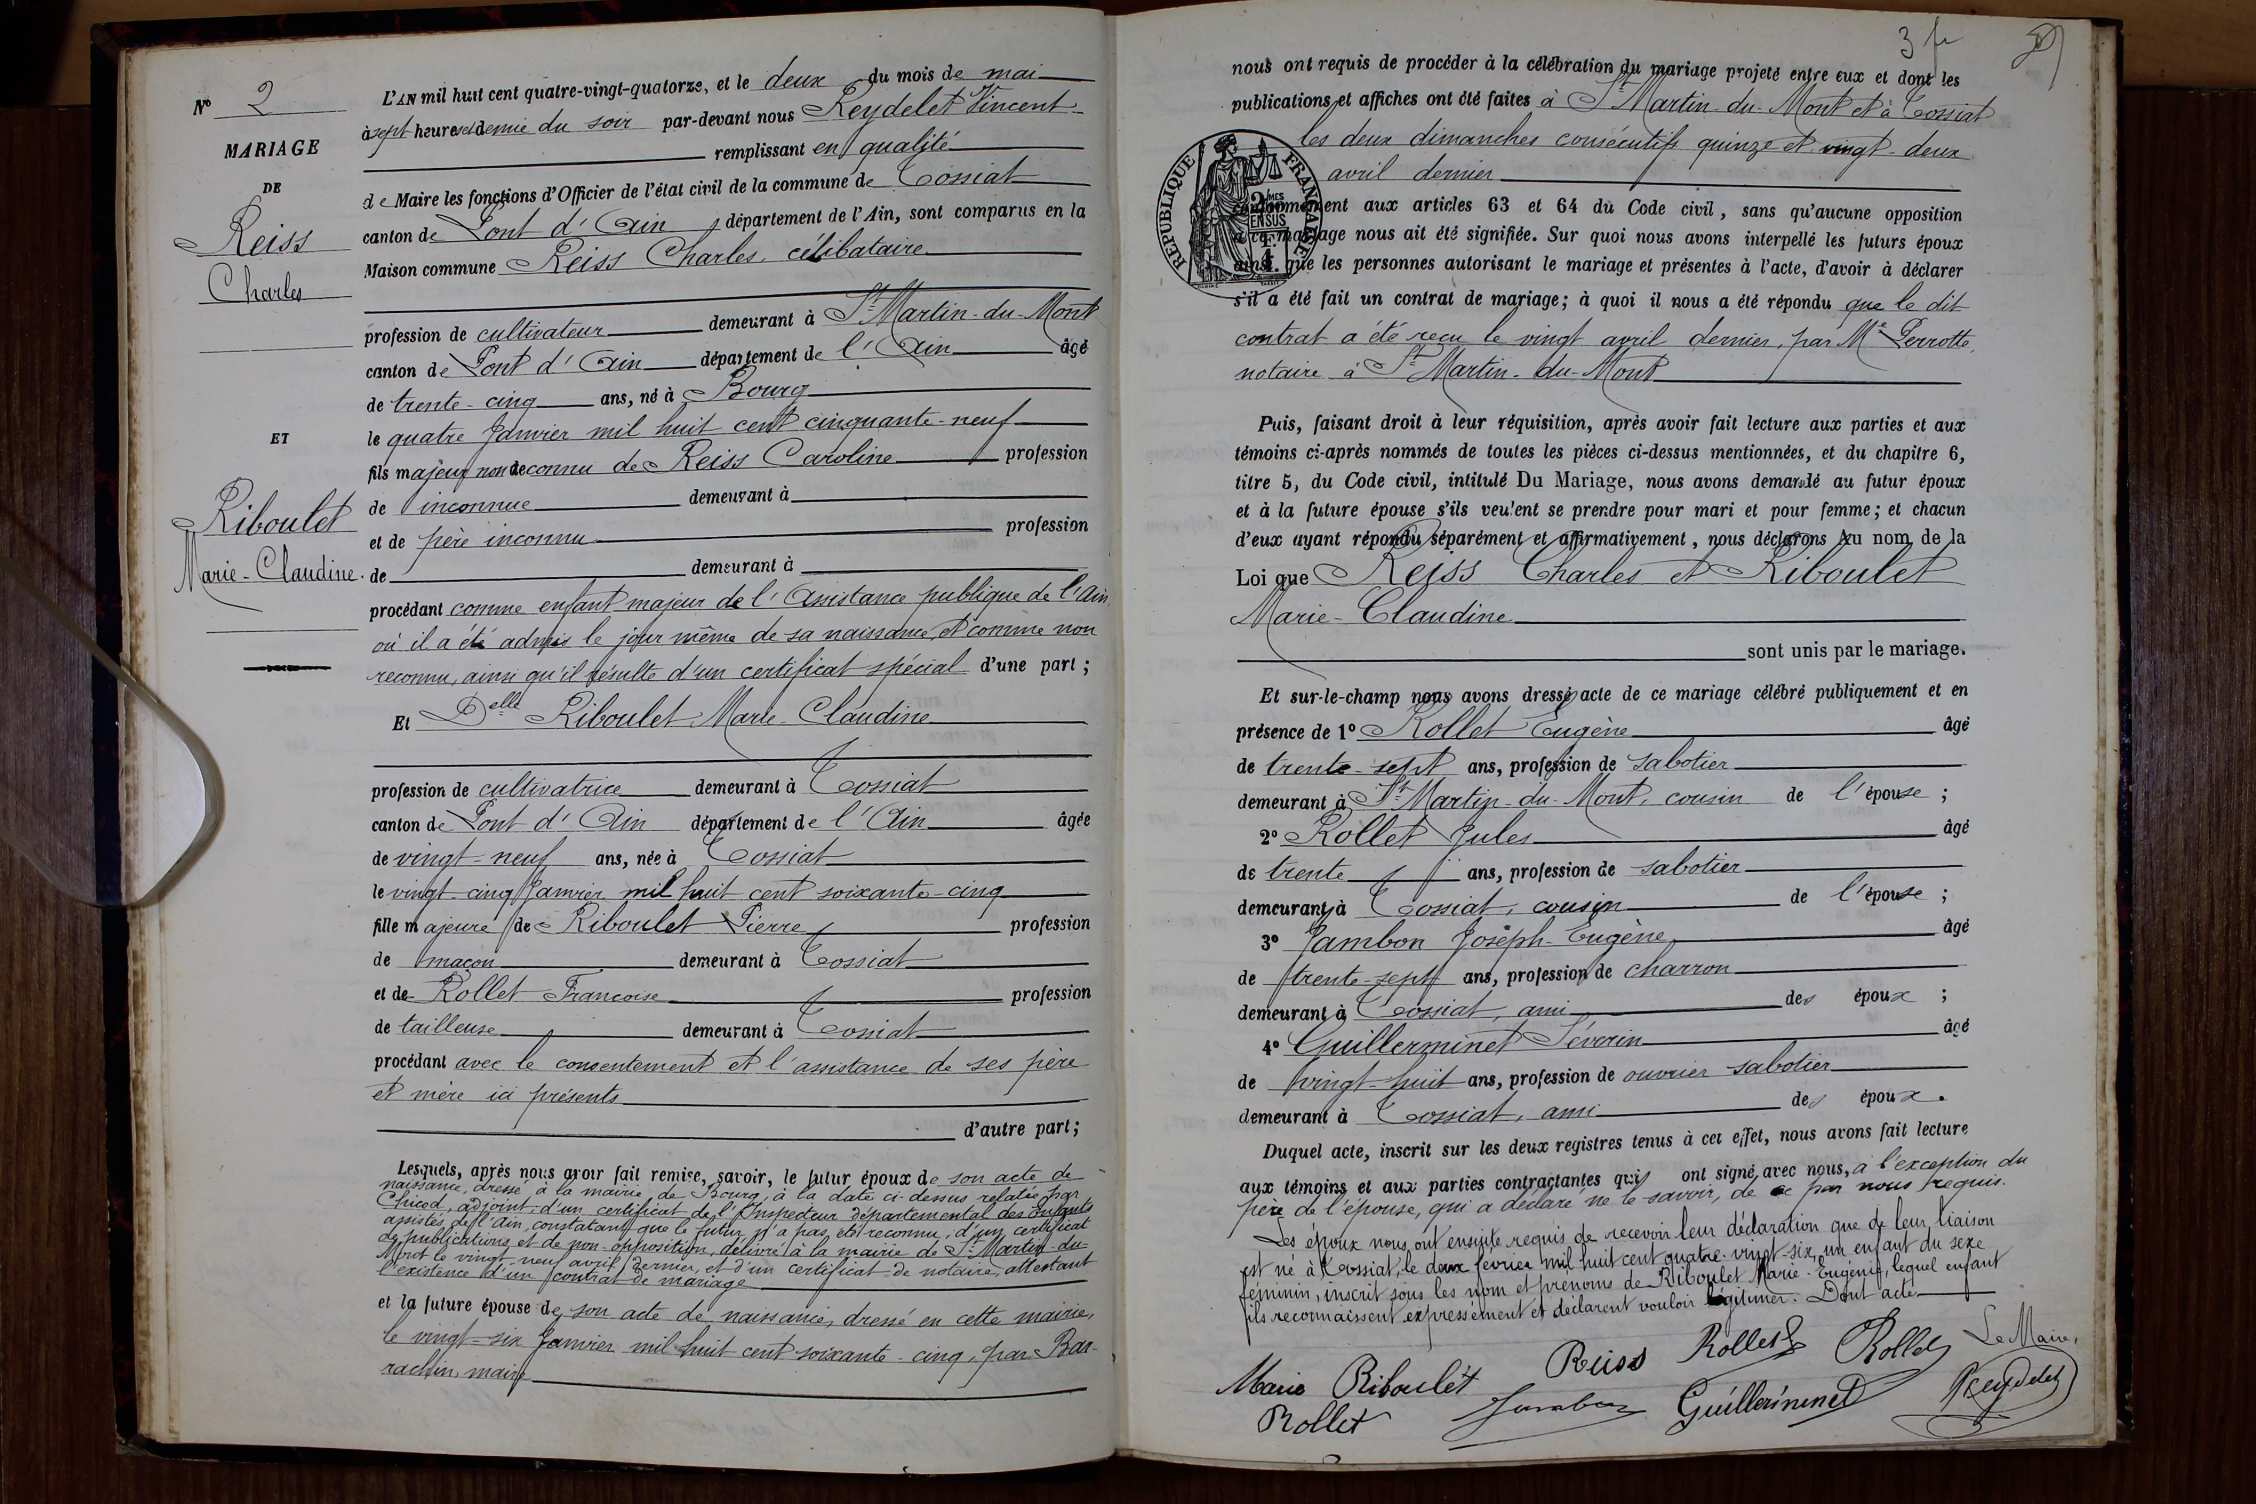 N° 2
MARIAGE
DE
Reiss
Charles
ET
Riboulet
Marie-Claudine.
L'AN mil huit cent quatre-vingt-quatorze, et le deux du mois de mai
à sept heures et demie du soir par-devant nous Reydelet Vincent
remplissant en qualité
de Maire les fonctions d'Officier de l'état civil de la commune de Tossiat
canton de Pont d'Ain, département de l'Ain, sont comparus en la
Maison commune Reiss Charles, célibataire
profession de cultivateur demeurant à St Martin-du-Mont
canton de Pont d'Ain département de l'Ain âgé
de trente-cinq ans, né à Bourg
le quatre Janvier mil huit cent cinquante-neuf
fils majeur non reconnu de Reiss Caroline profession
de inconnue demeurant à
et de père inconnu profession
de demeurant à
procédant comme enfant majeur de l'Assistance publique de l'Ain,
où il a été admis le jour même de sa naissance, et comme non
reconnu, ainsi qu'il résulte d'un certificat spécial d'une part ;
Et Delle Riboulet Marie-Claudine
profession de cultivatrice demeurant à Tossiat
canton de Pont d'Ain département de l'Ain âgée
de vingt-neuf ans, née à Tossiat
le vingt-cinq Janvier mil huit cent soixante-cinq
fille majeure de Riboulet Pierre profession
de maçon demeurant à Tossiat
et de Rollet Françoise profession
de tailleuse demeurant à Tossiat
procédant avec le consentement et l'assistance de ses père
et mère ici présents
d'autre part ;
Lesquels, après nous avoir fait remise, savoir, le futur époux de son acte de
naissance, dressé à la mairie de Bourg, à la date ci-dessus relatée, par
Chicod, adjoint, d'un certificat de l'Inspecteur départemental des Enfants
assistés de l'Ain, constatant que le futur n'a pas été reconnu, d'un certificat
de publications et de non-opposition, délivré à la mairie de St Martin-du-
Mont le vingt-neuf avril dernier, et d'un certificat de notaire, attestant
l'existence d'un contrat de mariage
et la future épouse de son acte de naissance, dressé en cette mairie,
le vingt-six Janvier mil huit cent soixante-cinq, par Bar-
rachin, maire
3 fr
nous ont requis de procéder à la célébration du mariage projeté entre eux et dont les
publications et affiches ont été faites à St Martin-du-Mont et à Tossiat
les deux dimanches consécutifs quinze et vingt-deux
avril dernier
REPUBLIQUE FRANCAISE
2 DMES EN SUS
conformément aux articles 63 et 64 du Code civil, sans qu'aucune opposition
à ce mariage nous ait été signifiée. Sur quoi nous avons interpellé les futurs époux
ainsi que les personnes autorisant le mariage et présentes à l'acte, d'avoir à déclarer
s'il a été fait un contrat de mariage ; à quoi il nous a été répondu que le dit
contrat a été reçu le vingt avril dernier, par Me Perrotte,
notaire à St Martin-du-Mont
Puis, faisant droit à leur réquisition, après avoir fait lecture aux parties et aux
témoins ci-après nommés de toutes les pièces ci-dessus mentionnées, et du chapitre 6,
titre 5, du Code civil, intitulé Du Mariage, nous avons demandé au futur époux
et à la future épouse s'ils veulent se prendre pour mari et pour femme ; et chacun
d'eux ayant répondu séparément et affirmativement, nous déclarons Au nom de la
Loi que Reiss Charles et Riboulet
Marie-Claudine
sont unis par le mariage.
Et sur-le-champ nous avons dressé acte de ce mariage célébré publiquement et en
présence de 1° Rollet Eugène âgé
de trente-sept ans, profession de sabotier
demeurant à St Martin-du-Mont, cousin de l'épouse ;
2° Rollet Jules âgé
de trente ans, profession de sabotier
demeurant à Tossiat, cousin de l'épouse ;
3° Jambon Joseph-Eugène âgé
de trente-sept ans, profession de charron
demeurant à Tossiat, ami des époux ;
4° Guillerminet Séverin âgé
de vingt-huit ans, profession de ouvrier sabotier
demeurant à Tossiat, ami des époux.
Duquel acte, inscrit sur les deux registres tenus à cet effet, nous avons fait lecture
aux témoins et aux parties contractantes qui ont signé avec nous, à l'exception du
père de l'épouse, qui a déclaré ne le savoir, de ce par nous requis.
Les époux nous ont ensuite requis de recevoir leur déclaration que de leur liaison
est né à Tossiat, le deux février mil huit cent quatre-vingt-six, un enfant du sexe
féminin, inscrit sous les nom et prénoms de Riboulet Marie-Eugénie, lequel enfant
ils reconnaissent expressément et déclarent vouloir légitimer. Dont acte
Marie Riboulet Reiss Rollet Rollet Le Maire,
Rollet Jambon Guillerminet Reydelet